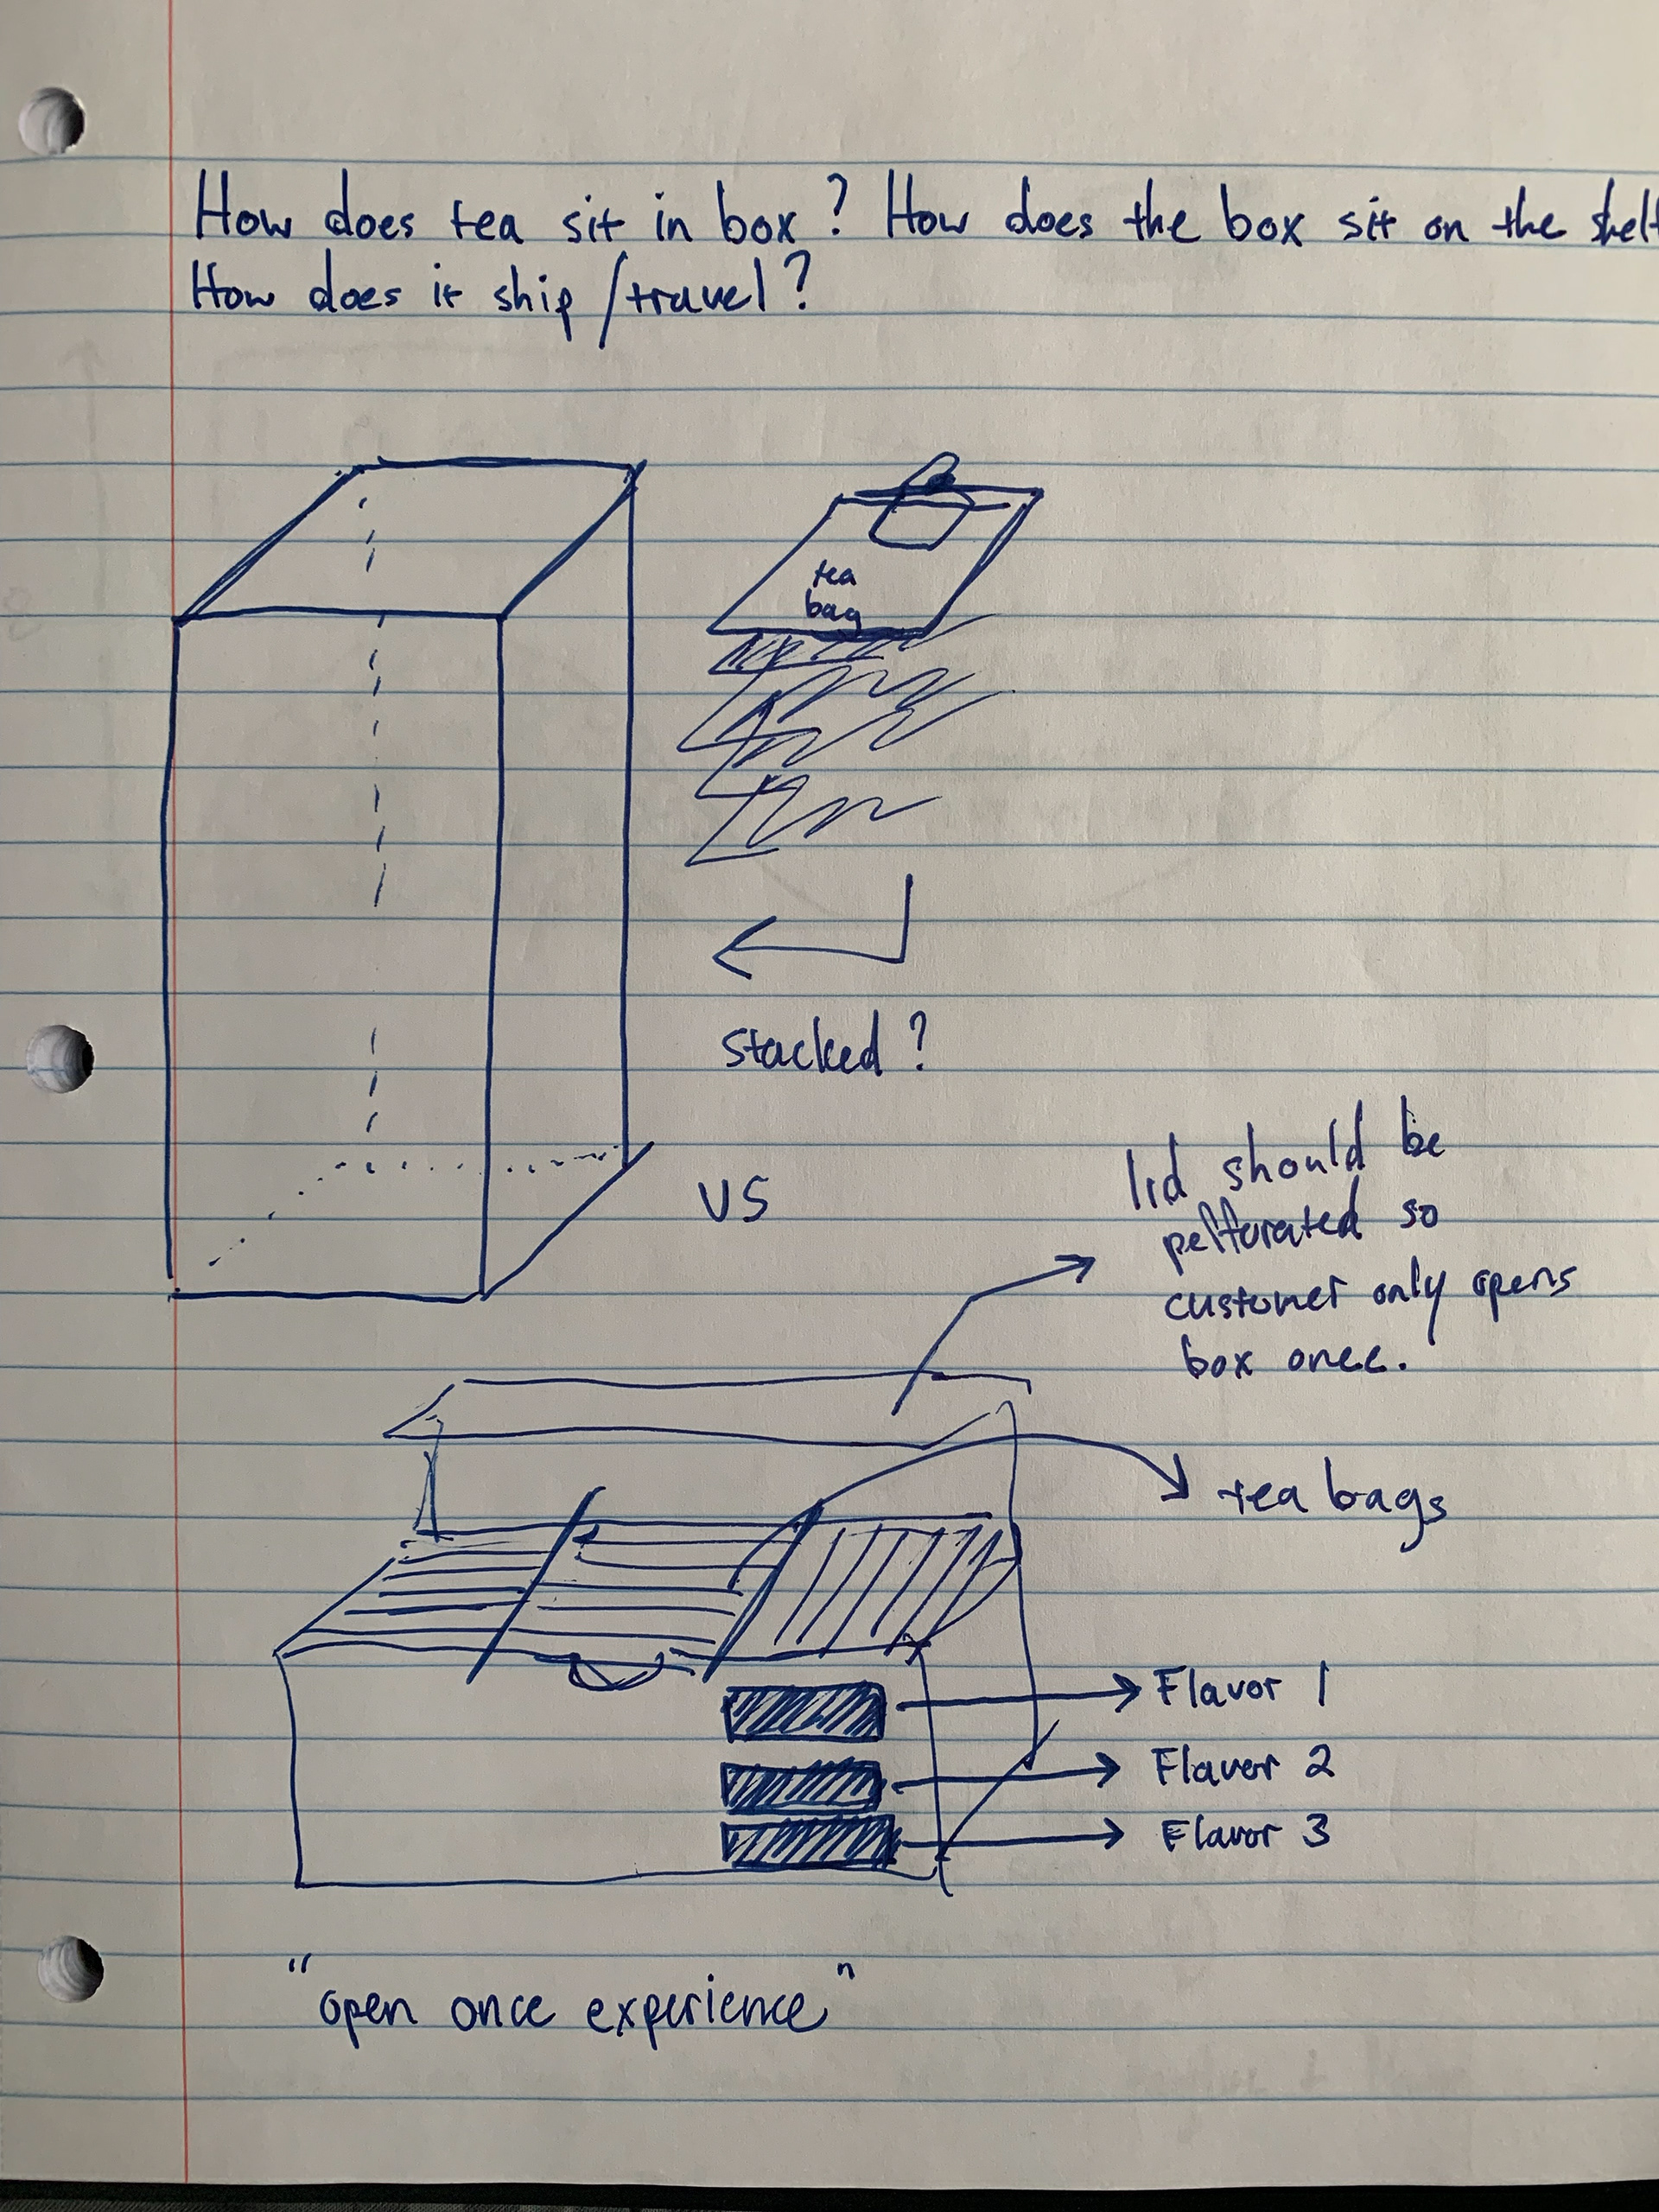 How does tea sit in box? How does the box sit on the shelf
How does it ship/travel?
tea
bag
stacked?
VS
lid should be
perforated so
customer only opens
box once.
tea bags
Flavor 1
Flavor 2
Flavor 3
"open once experience"